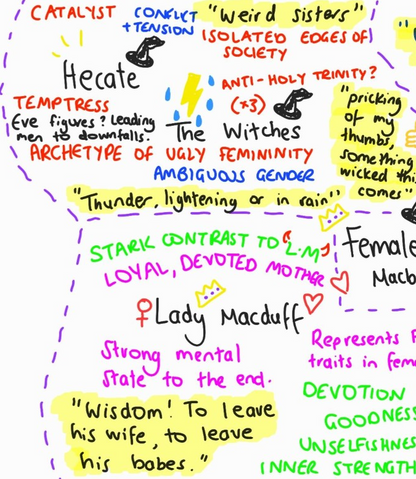 CATALYST
CONFLICT
+ TENSION
"Weird sisters"
ISOLATED EDGES OF
SOCIETY
Hecate
ANTI-HOLY TRINITY?
(x3)
TEMPTRESS
Eve figures? Leading
men to downfalls.
The Witches
ARCHETYPE OF UGLY FEMININITY
AMBIGUOUS GENDER
"Thunder, lightening or in rain"
"pricking
of my
thumbs,
something
wicked thi
comes"
STARK CONTRAST TO L.M
LOYAL, DEVOTED MOTHER
Female
Macb
Lady Macduff
Strong mental
state to the end.
"Wisdom! To leave
his wife, to leave
his babes."
Represents
traits in fem
DEVOTION
GOODNESS
UNSELFISHNES
INNER STRENGTH